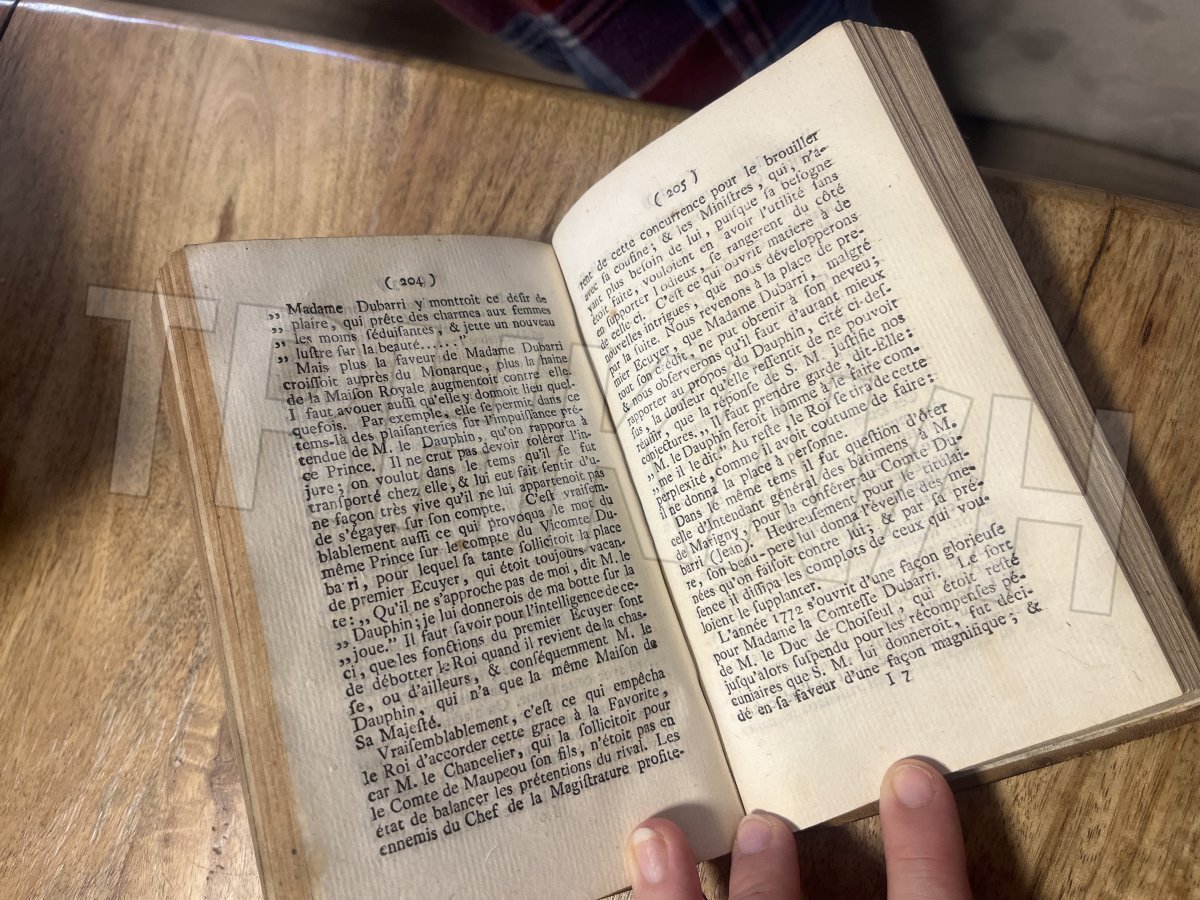 ( 204 )
„ Madame Dubarri y montroit ce deſir de
„ plaire, qui prête des charmes aux femmes
„ les moins ſéduiſantes, & jette un nouveau
„ luſtre ſur la beauté......."
Mais plus la faveur de Madame Dubarri
croiſſoit auprès du Monarque, plus la haine
de la Maiſon Royale augmentoit contre elle.
I faut avouer auſſi qu'elle y donnoit lieu quel-
quefois. Par exemple, elle ſe permit dans ce
tems-là des plaiſanteries ſur l'impuiſſance pré-
tendue de M. le Dauphin, qu'on rapporta à
ce Prince. Il ne crut pas devoir tolérer l'in-
jure; on voulut dans le tems qu'il ſe fut
tranſporté chez elle, & lui eut fait ſentir d'u-
ne façon très vive qu'il ne lui appartenoit pas
de s'égayer ſur ſon compte. C'eſt vraiſem-
blablement auſſi ce qui provoqua le mot du
même Prince ſur le compte du Vicomte Du-
ba·ri, pour lequel ſa tante ſollicitoit la place
de premier Ecuyer, qui étoit toujours vacan-
te: „ Qu'il ne s'approche pas de moi, dit M. le
„ Dauphin; je lui donnerois de ma botte ſur la
„ joue." Il faut ſavoir pour l'intelligence de ce-
ci, que les fonctions du premier Ecuyer ſont
de débotter le Roi quand il revient de la chas-
ſe, ou d'ailleurs, & conſéquemment M. le
Dauphin, qui n'a que la même Maiſon de
Sa Majeſté.
Vraiſemblablement, c'eſt ce qui empêcha
le Roi d'accorder cette grace à la Favorite,
car M. le Chancelier, qui la ſollicitoit pour
le Comte de Maupeou ſon fils, n'étoit pas en
état de balancer les prétentions du rival. Les
ennemis du Chef de la Magiſtrature profite-
( 205 )
rent de cette concurrence pour le brouiller
avec ſa couſine; & les Miniſtres, qui, n'a-
yant plus beſoin de lui, puiſque ſa beſogne
étoit faite, vouloient en avoir l'utilité ſans
en ſupporter l'odieux, ſe rangerent du côté
de celle ci. C'eſt ce qui ouvrit matiere à de
nouvelles intrigues, que nous développerons
par la ſuite. Nous revenons à la place de pre-
mier Ecuyer, que Madame Dubarri, malgré
tout ſon crédit, ne put obtenir à ſon neveu;
& nous obſerverons qu'il faut d'autant mieux
rapporter au propos du Dauphin, cité ci-deſ-
ſus, la douleur qu'elle reſſentit de ne pouvoir
réuſſir, que la réponſe de S. M. juſtifie nos
conjectures. „ Il faut prendre garde, dit-Elle:
„ M. le Dauphin ſeroit homme à le faire com-
„ me il le dit." Au reſte, le Roi ſe tira de cette
perplexité, comme il avoit coutume de faire:
il ne donna la place à perſonne.
Dans le même tems il fut queſtion d'ôter
celle d'Intendant général des bâtimens à M.
de Marigny, pour la conférer au Comte Du-
barri (Jean). Heureuſement pour le titulai-
re, ſon beau-pere lui donna l'éveille des me-
nées qu'on faiſoit contre lui; & par ſa pré-
ſence il diſſipa les complots de ceux qui vou-
loient le ſupplanter.
L'année 1772 s'ouvrit d'une façon glorieuſe
pour Madame la Comteſſe Dubarri. Le ſort
de M. le Duc de Choiſeul, qui étoit reſté
juſqu'alors ſuſpendu pour les récompenſes pé-
cuniaires que S. M. lui donneroit, fut déci-
dé en ſa faveur d'une façon magnifique; &
I 7